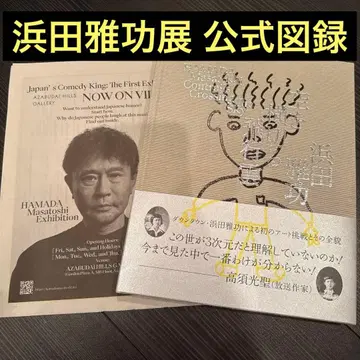 浜田雅功展 公式図録
Japan's Comedy King: The First Ex
AZABUDAI HILLS
GALLERY
NOW ON VI
Want to understand Japanese humor?
Start here.
Why do Japanese people laugh at this man?
Find out inside.
HAMADA
Masatoshi
Exhibition
Opening Hours:
Fri, Sat, Sun, and Holidays
Mon, Tue, Wed, and Thu
Venue:
AZABUDAI HILLS G
ダウンタウン・浜田雅功による初のアート挑戦とその全貌
この世が3次元だと理解していないのか!
今まで見た中で一番わけが分からない!
高須光聖(放送作家)